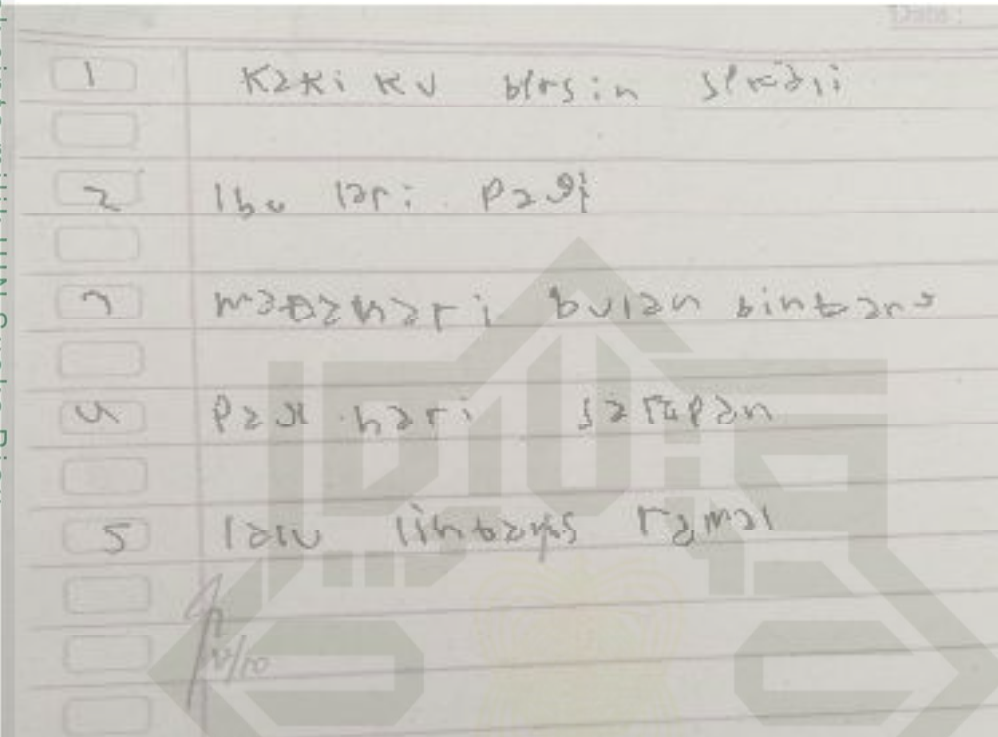 Date:
1 Kaki ku bersin sekali
2 Ibu lari pagi
3 matahari bulan bintang
4 Pagi hari sarapan
5 lalu lintas ramai